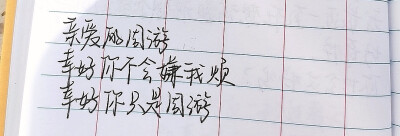 亲爱的周游
幸好你不会嫌我烦
幸好你只是周游